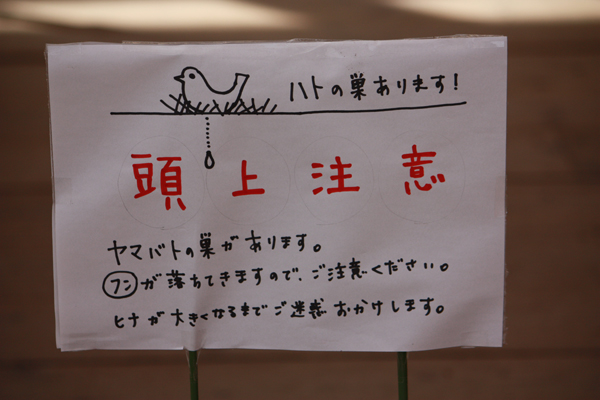 ハトの巣あります!
頭上注意
ヤマバトの巣があります。
フンが落ちてきますので、ご注意ください。
ヒナが大きくなるまでご迷惑おかけします。